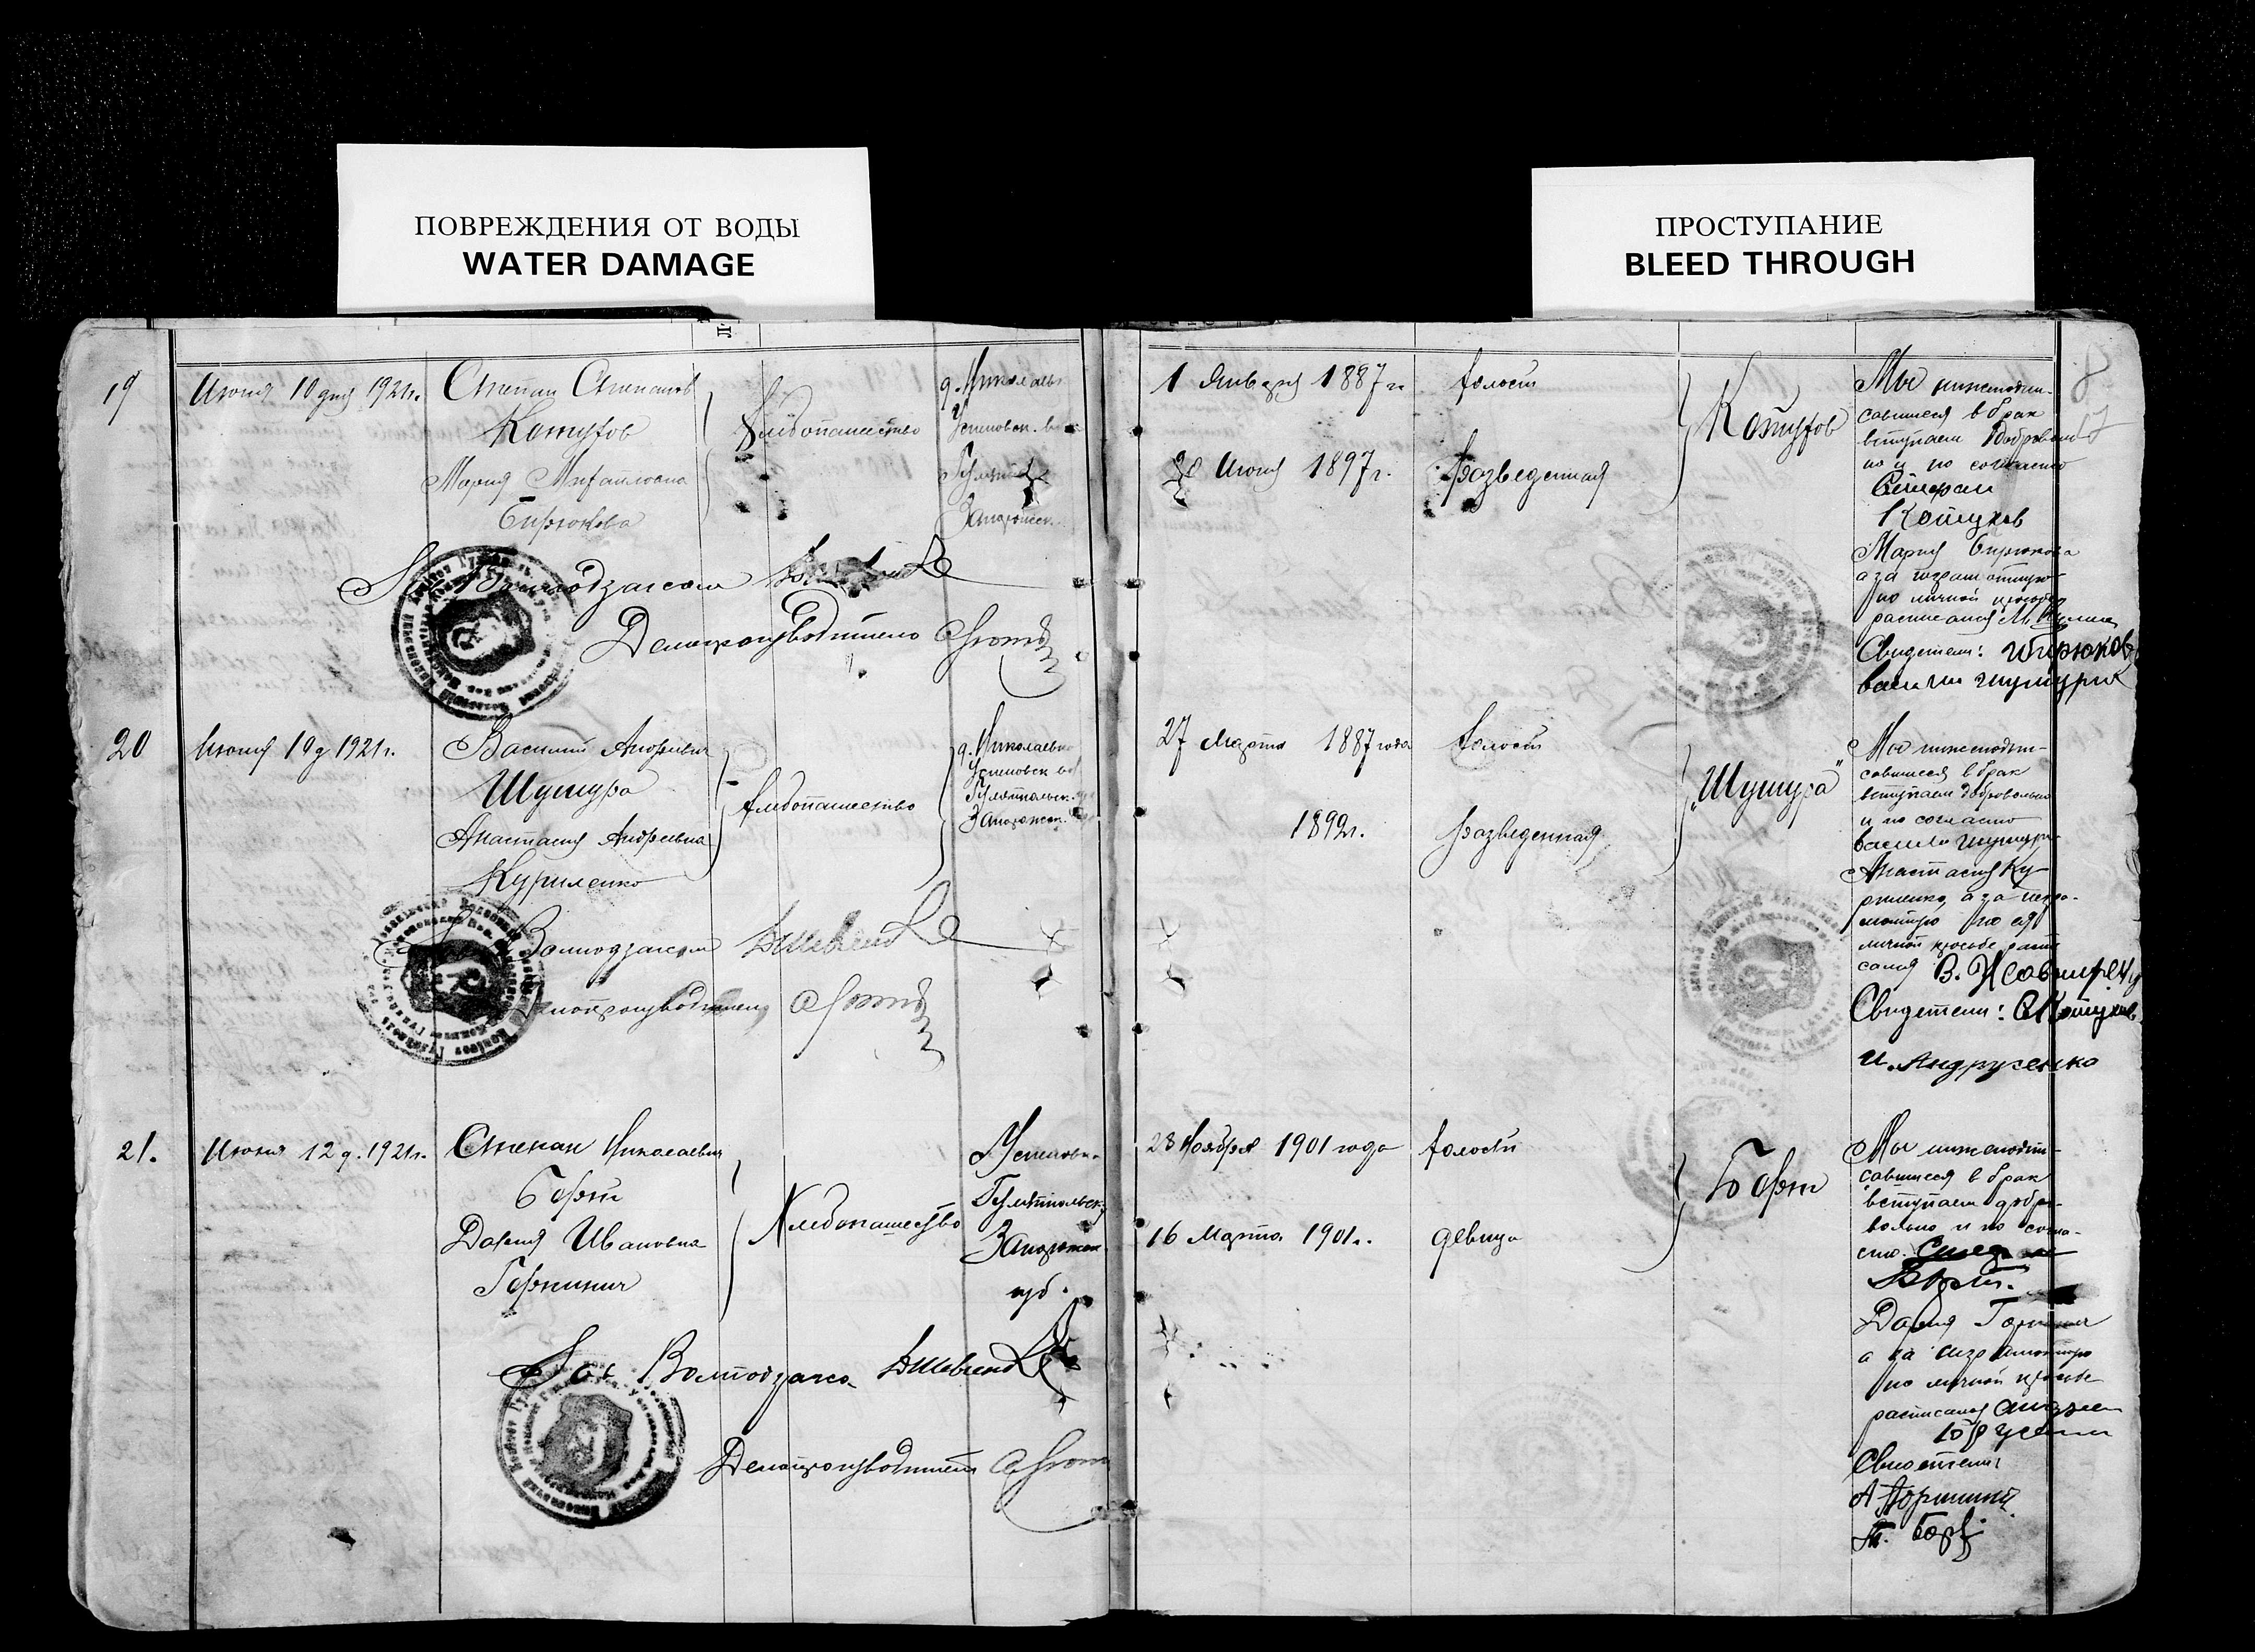 ПОВРЕЖДЕНИЯ ОТ ВОДЫ
WATER DAMAGE
ПРОСТУПАНИЕ
BLEED THROUGH
8
17
19
Июня 10 дня 1921 г.
Степан Степанов
Котухов
Мария Михайловна
Бирюкова
Хлебопашество
д. Николаев
Успеновск. вол
Гуляйп
Запорожск.
1 Января 1887 г.
20 Июня 1897 г.
холост
разведенная
Котухов
Мы нижеподпи-
савшиеся в брак
вступаем доброволь
но и по согласию
Степан
Котухов
Мария Бирюкова
а за неграмотную
по личной просьбе
расписался М.
Свидетели: И Бирюков
василий шушура
Зав Волподзагсом
Делопроизводитель
20
Июня 19 д 1921 г.
Василий Андреевич
Шушура
Анастасия Андреевна
Куриленко
Хлебопашество
д. Николаевка
Успеновск вол
Гуляйпольск.
Запорожск.
27 Марта 1887 года
1892 г.
холост
разведенная
"Шушура"
Мы нижеподпи-
савшиеся в брак
вступаем добровольно
и по согласию
василий шушура
Анастасия Ку-
риленко, а за негра-
мотную по ея
личной просьбе распи
сался В.
Свидетели: С Котухов
И. Андрусенко
Волподзагсом
Делопроизводитель
21.
Июня 12 д. 1921 г.
Степан Николаевич
Борт
Дария Ивановна
Горпинич
Хлебопашество
Успеновк.
Гуляйпольск.
Запорожск.
губ.
28 Ноября 1901 года
16 Марта 1901 г.
холост
девица
Борт
Мы нижеподпи-
савшиеся в брак
вступаем добро-
вольно и по согла-
сию.
Борт.
Дария Горпинич
а за неграмотную
по личной просьбе
расписался
Свидетели
А
Т. Борт
Зав Волподзагса
Делопроизводитель